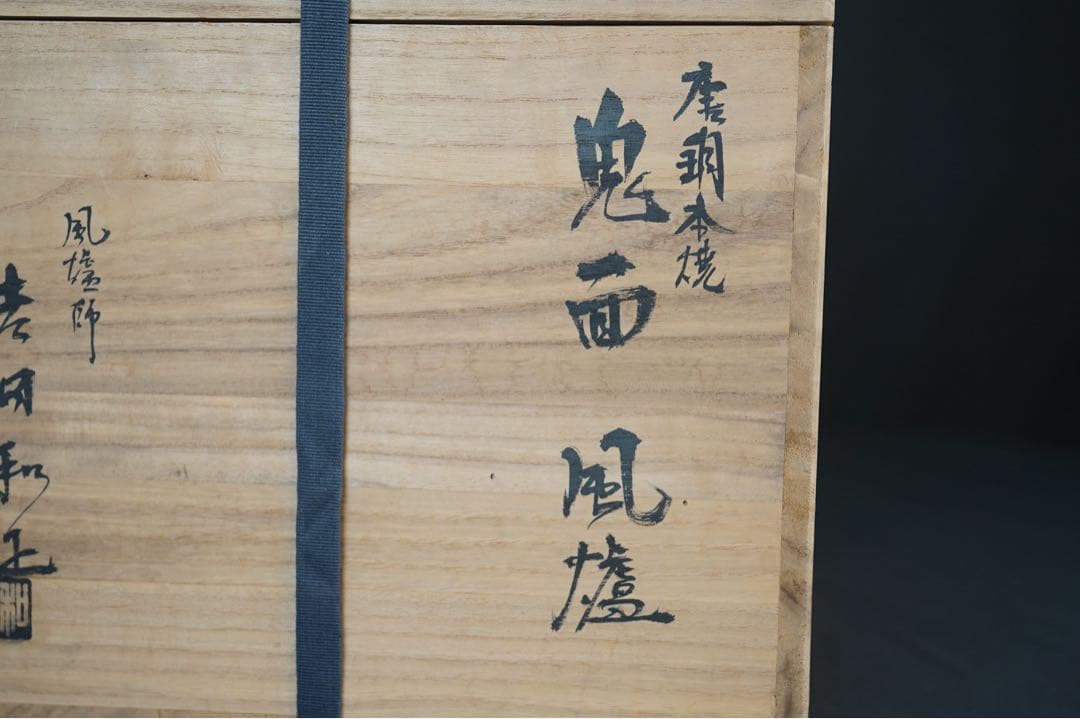 唐銅本焼
鬼面風爐
風爐師
吉羽和正